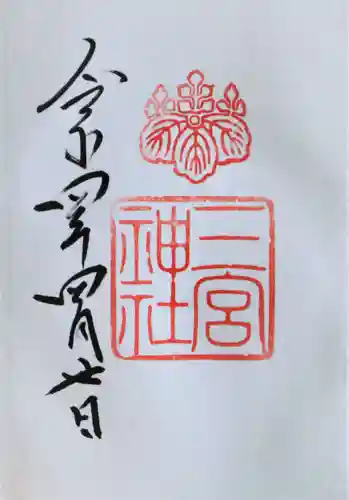 三宮
神社
令和四年四月七日